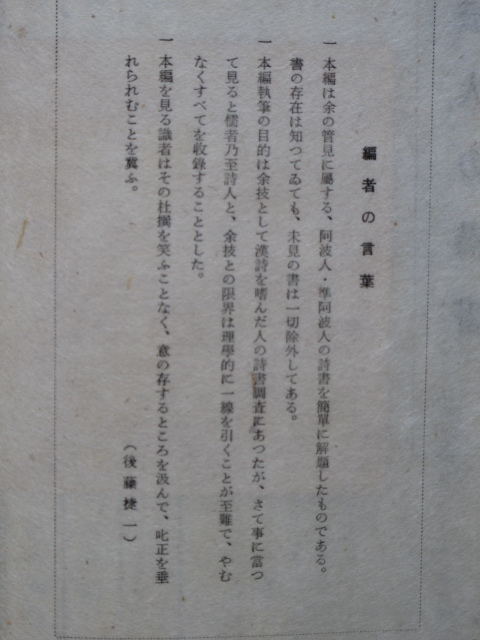 編者の言葉
一 本編は余の管見に屬する、阿波人・準阿波人の詩書を簡單に解題したものである。
書の存在は知つてゐても、未見の書は一切除外してある。
一 本編執筆の目的は余技として漢詩を嗜んだ人の詩書調査にあつたが、さて事に當つ
て見ると儒者乃至詩人と、余技との限界は理學的に一線を引くことが至難で、やむ
なくすべてを收錄することとした。
一 本編を見る識者はその杜撰を笑ふことなく、意の存するところを汲んで、叱正を垂
れられむことを冀ふ。
(後藤捷一)